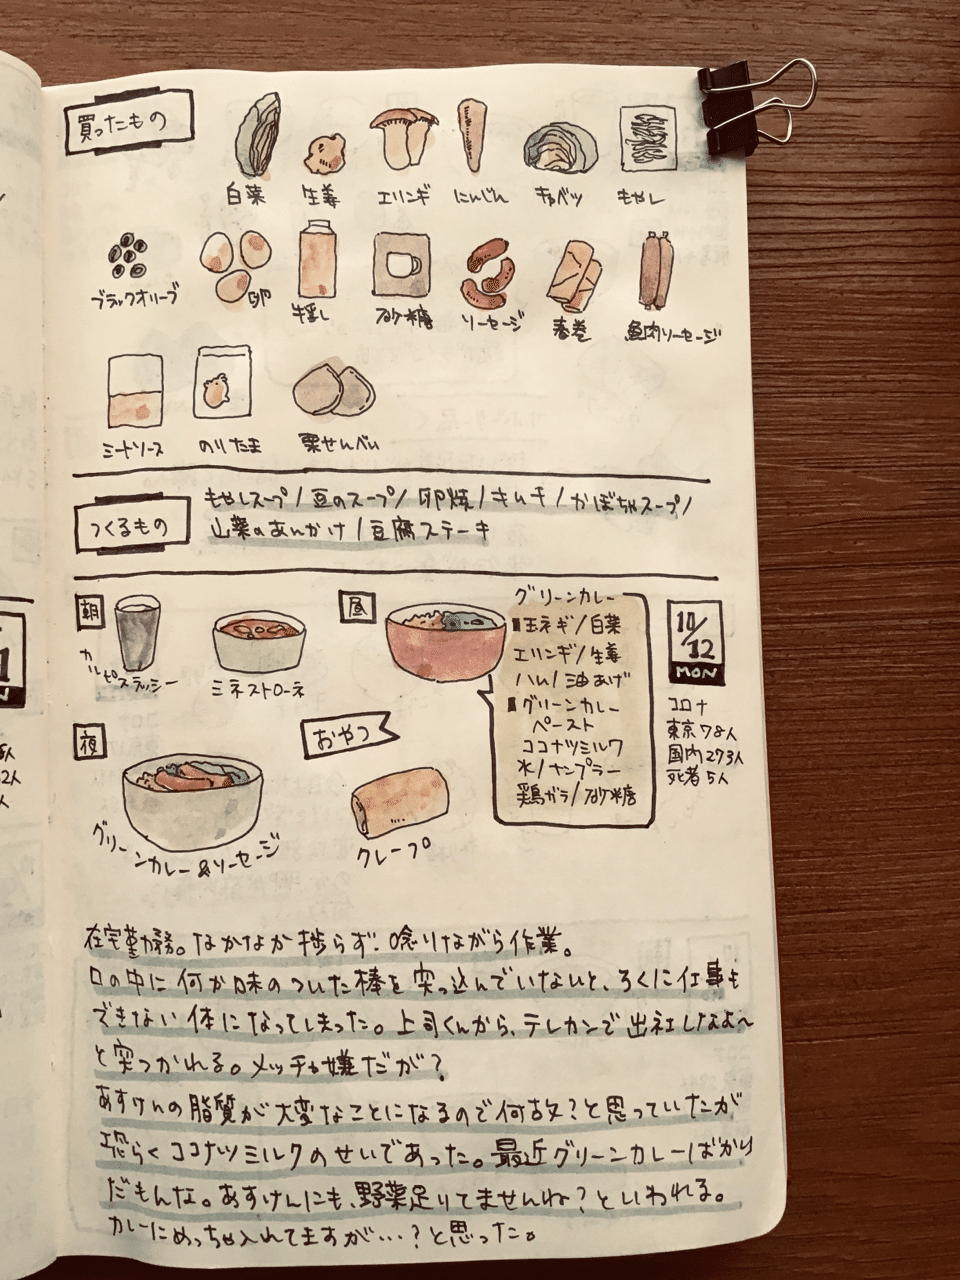 買ったもの
白菜 生姜 エリンギ にんじん キャベツ もやし
ブラックオリーブ 卵 牛乳 砂糖 ソーセージ 春巻 魚肉ソーセージ
ミートソース のりたま 栗せんべい
つくるもの
もやしスープ/豆のスープ/卵焼/キムチ/かぼちゃスープ/
山菜のあんかけ/豆腐ステーキ
朝
カルピスラッシー
ミネストローネ
昼
グリーンカレー
玉ネギ/白菜
エリンギ/生姜
ハム/油あげ
グリーンカレー
ペースト
ココナツミルク
水/ナンプラー
鶏ガラ/砂糖
10/12
MON
コロナ
東京78人
国内273人
死者5人
夜
グリーンカレー&ソーセージ
おやつ
クレープ
在宅勤務。なかなか捗らず、唸りながら作業。
口の中に何か味のついた棒を突っ込んでいないと、ろくに仕事も
できない体になってしまった。上司くんから、テレカンで出社しなよ〜
と突つかれる。メッチャ嫌だが?
あすけんの脂質が大変なことになるので何故?と思っていたが
恐らくココナツミルクのせいであった。最近グリーンカレーばかり
だもんな。あすけんにも、野菜足りてませんね?といわれる。
カレーにめっちゃ入れてますが…?と思った。